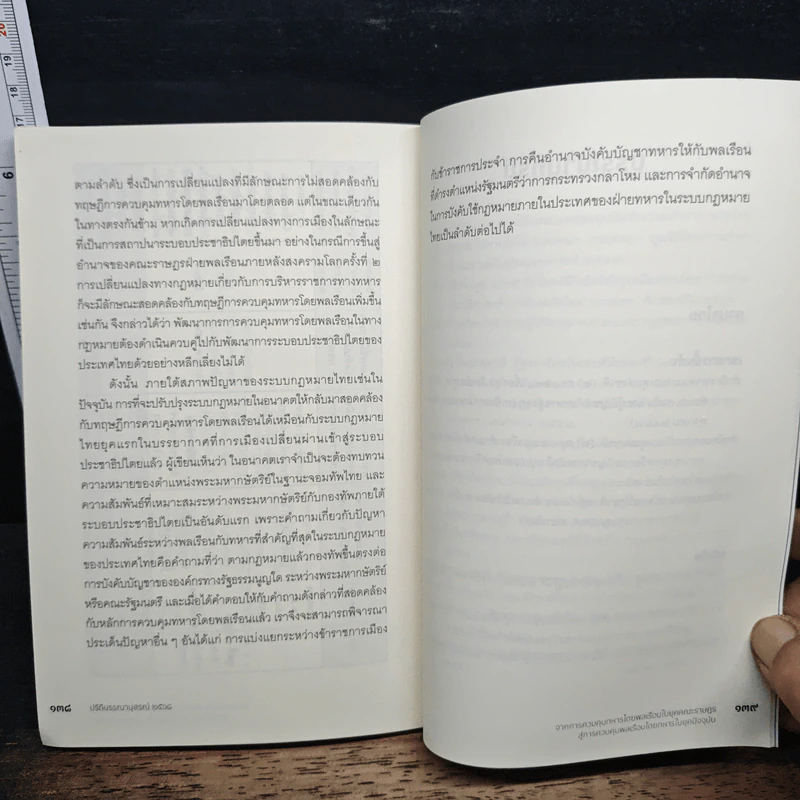 ตามลำดับ ซึ่งเป็นการเปลี่ยนแปลงที่มีลักษณะการไม่สอดคล้องกับ
ทฤษฎีการควบคุมทหารโดยพลเรือนมาโดยตลอด แต่ในขณะเดียวกัน
ในทางตรงกันข้าม หากเกิดการเปลี่ยนแปลงทางการเมืองในลักษณะ
ที่เป็นการสถาปนาระบอบประชาธิปไตยขึ้นมา อย่างในกรณีการขึ้นสู่
อำนาจของคณะราษฎรฝ่ายพลเรือนภายหลังสงครามโลกครั้งที่ ๒
การเปลี่ยนแปลงทางกฎหมายเกี่ยวกับการบริหารราชการทางทหาร
ก็จะมีลักษณะสอดคล้องกับทฤษฎีการควบคุมทหารโดยพลเรือนเพิ่มขึ้น
เช่นกัน จึงกล่าวได้ว่า พัฒนาการการควบคุมทหารโดยพลเรือนในทาง
กฎหมายต้องดำเนินควบคู่ไปกับพัฒนาการระบอบประชาธิปไตยของ
ประเทศไทยด้วยอย่างหลีกเลี่ยงไม่ได้
ดังนั้น ภายใต้สภาพปัญหาของระบบกฎหมายไทยเช่นใน
ปัจจุบัน การที่จะปรับปรุงระบบกฎหมายในอนาคตให้กลับมาสอดคล้อง
กับทฤษฎีการควบคุมทหารโดยพลเรือนได้เหมือนกับระบบกฎหมาย
ไทยยุคแรกในบรรยากาศที่การเมืองเปลี่ยนผ่านเข้าสู่ระบอบ
ประชาธิปไตยแล้ว ผู้เขียนเห็นว่า ในอนาคตเราจำเป็นจะต้องทบทวน
ความหมายของตำแหน่งพระมหากษัตริย์ในฐานะจอมทัพไทย และ
ความสัมพันธ์ที่เหมาะสมระหว่างพระมหากษัตริย์กับกองทัพภายใต้
ระบอบประชาธิปไตยเป็นอันดับแรก เพราะคำถามเกี่ยวกับปัญหา
ความสัมพันธ์ระหว่างพลเรือนกับทหารที่สำคัญที่สุดในระบบกฎหมาย
ของประเทศไทยคือคำถามที่ว่า ตามกฎหมายแล้วกองทัพขึ้นตรงต่อ
การบังคับบัญชาขององค์กรทางรัฐธรรมนูญใด ระหว่างพระมหากษัตริย์
หรือคณะรัฐมนตรี และเมื่อได้คำตอบให้กับคำถามดังกล่าวที่สอดคล้อง
กับหลักการควบคุมทหารโดยพลเรือนแล้ว เราจึงจะสามารถพิจารณา
ประเด็นปัญหาอื่น ๆ อันได้แก่ การแบ่งแยกระหว่างข้าราชการเมือง
๑๓๘ ปรีดิบรรณานุสรณ์ ๒๕๖๘
กับข้าราชการประจำ การคืนอำนาจบังคับบัญชาทหารให้กับพลเรือน
ที่ดำรงตำแหน่งรัฐมนตรีว่าการกระทรวงกลาโหม และการจำกัดอำนาจ
ในการบังคับใช้กฎหมายภายในประเทศของฝ่ายทหารในระบบกฎหมาย
ไทยเป็นลำดับต่อไปได้
จากการควบคุมทหารโดยพลเรือนในยุคคณะราษฎร ๑๓๙
สู่การควบคุมพลเรือนโดยทหารในยุคปัจจุบัน
20
19
18
17
6